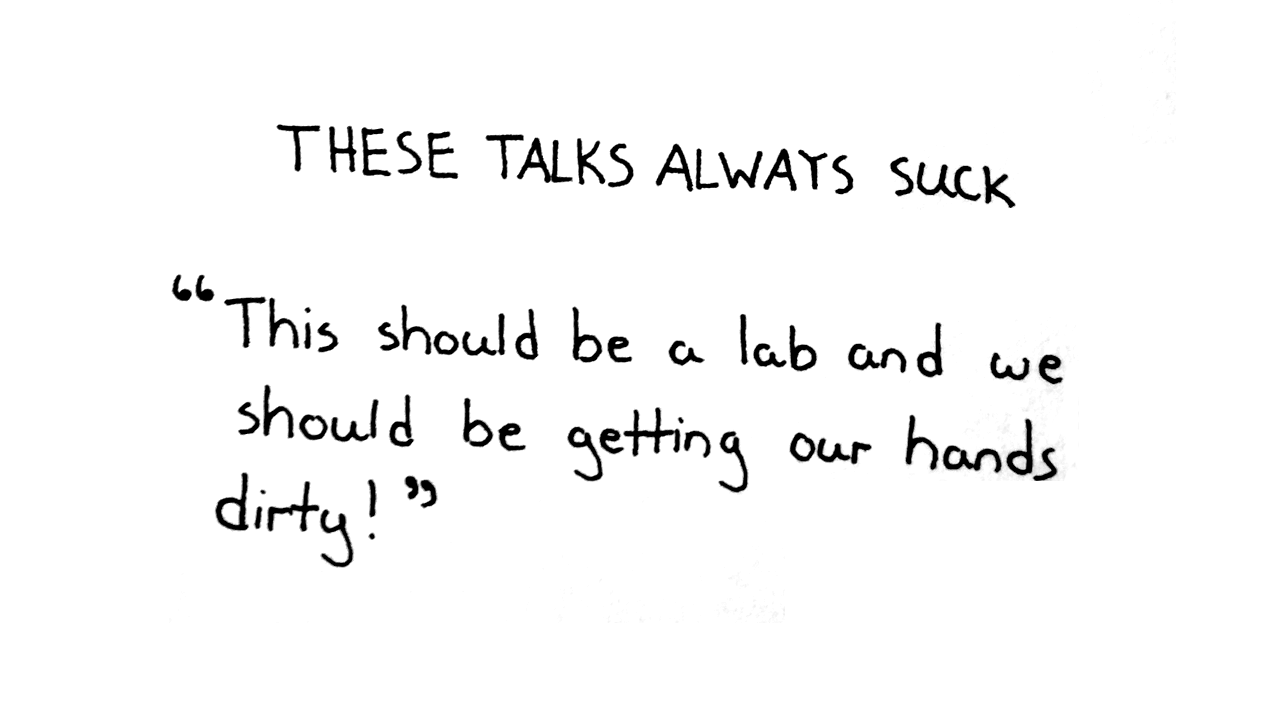 THESE TALKS ALWAYS SUCK
“This should be a lab and we
should be getting our hands
dirty!”